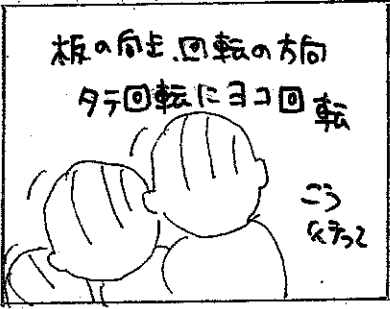 板の向き、回転の方向
タテ回転にヨコ回転
こう